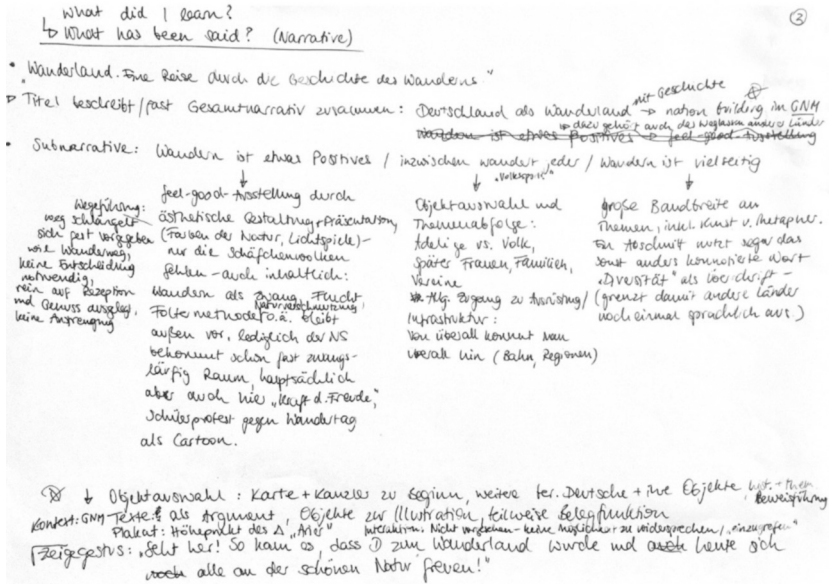 What did I learn?
↳ What has been said? (Narrative)
②
• "Wanderland. Eine Reise durch die Geschichte des Wanderns."
▷ Titel beschreibt/fast Gesamtnarrativ zusammen: Deutschland als Wanderland mit Geschichte → nation building im GNM
→ dazu gehört auch das Weglassen anderer Länder
Wandern ist etwas Positives → feel-good-Ausstellung
• Subnarrative: Wandern ist etwas Positives / inzwischen wandert jeder / Wandern ist vielseitig
"Volkssport"
feel-good-Ausstellung durch
ästhetische Gestaltung + Präsentation,
(Farben der Natur, Lichtspiele) –
nur die Schäfchenwolken
fehlen – auch inhaltlich:
Wandern als Zwang, Flucht,
Naturverschmutzung,
Foltermethode o.ä. bleibt
außen vor, lediglich der NS
bekommt schon fast zwangs-
läufig Raum, hauptsächlich
aber auch hier "Kraft d. Freude",
Schülerprotest gegen Wandertag
als Cartoon.
Wegeführung:
Weg schlängelt
sich fest vorgegeben
wie Wanderweg,
keine Entscheidung
notwendig,
rein auf Rezeption
und Genuss ausgelegt,
keine Anstrengung
Objektauswahl und
Themenabfolge:
Adelige vs. Volk,
später Frauen, Familien,
Vereine
Allg. Zugang zu Ausrüstung/
Infrastruktur:
Von überall kommt man
überall hin (Bahn, Regionen)
große Bandbreite an
Themen, inkl. Kunst u. Metapher.
Ein Abschnitt nutzt sogar das
sonst anders konnotierte Wort
"Diversität" als Überschrift –
(grenzt damit andere Länder
noch einmal sprachlich aus)
↓ Objektauswahl: Karte + Kanzler zu Beginn, weitere ber. Deutsche + ihre Objekte, hist. + them.
Beweisführung
Kontext: GNM – Texte als Argument, Objekte zur Illustration, teilweise Belegfunktion
Plakat: Höhepunkt des "Arier" Interaktion: Nicht vorgesehen – keine Möglichkeit zu widersprechen / "einzugreifen"
Zeigegestus: "Seht her! So kam es, dass D zum Wanderland wurde und auch heute sich
noch alle an der schönen Natur freuen!"